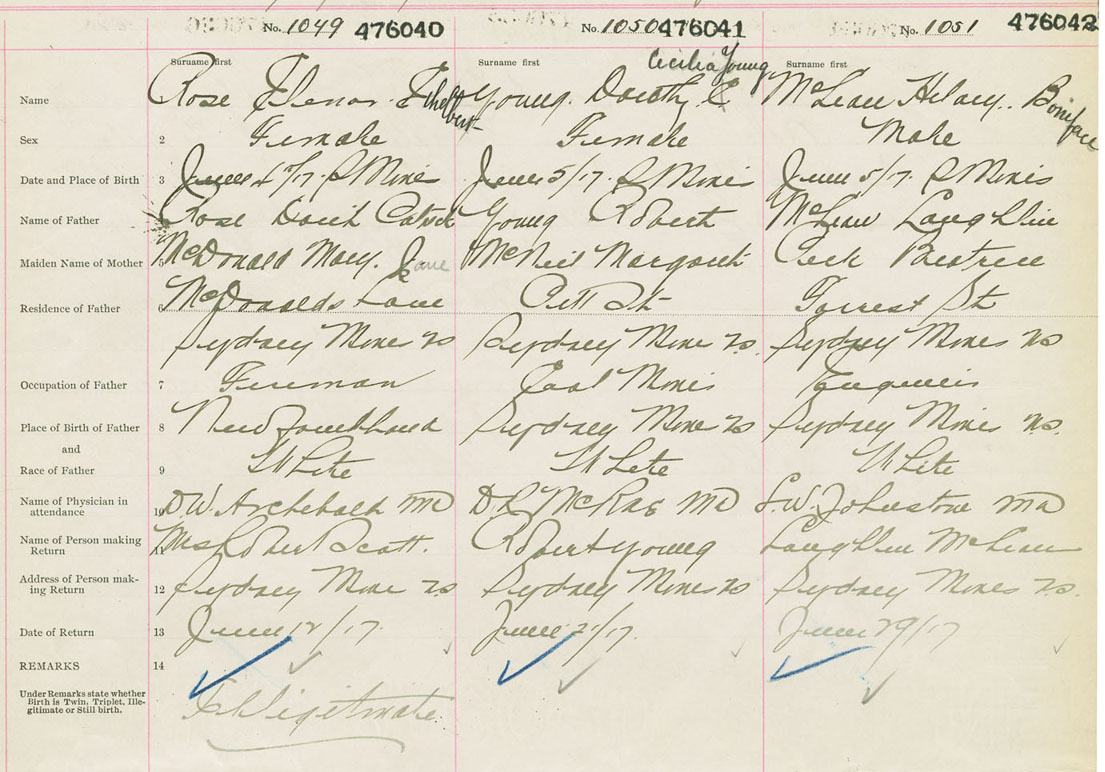 No. 1049 476040 No. 1050 476041 No. 1051 476042
Surname first Surname first Cecilia Young Surname first
Name Rose Elenor Ethelbert Young Dorothy C McLean Hilary Boniface
Sex 2 Female Female Male
Date and Place of Birth 3 June /17 S Mines June 5/17 S Mines June 5/17 S Mines
Name of Father Rose David Young Robert McLean Laughlin
Maiden Name of Mother 5 McDonald Mary Jane McNeil Margaret Beatrice
Residence of Father 6 McDonalds Lane Pitt St Forrest St
Sydney Mine NS Sydney Mine NS. Sydney Mines NS
Occupation of Father 7 Fireman Coal Miner
Place of Birth of Father 8 Newfoundland Sydney Mine NS Sydney Mines NS.
and
Race of Father 9 White White White
Name of Physician in
attendance 10 D.W. Archibald MD D.R McRae MD L.W. Johnstone MD
Name of Person making
Return 11 Mrs Robert Scott. Robert Young Laughlin McLean
Address of Person mak-
ing Return 12 Sydney Mine NS Sydney Mines NS Sydney Mines NS.
Date of Return 13 June 12/17 June 21/17. June 29/17
REMARKS 14
Under Remarks state whether
Birth is Twin, Triplet, Ille-
gitimate or Still birth.
Illigitimate